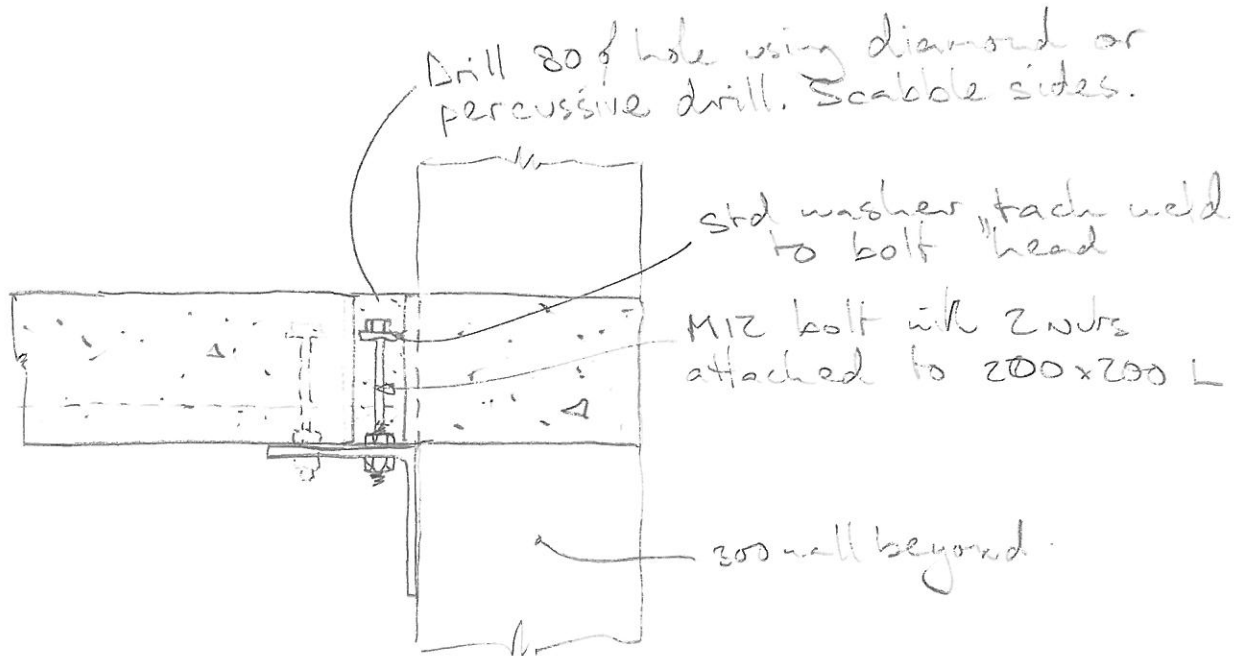 Drill 80 ϕ hole using diamond or
percussive drill. Scabble sides.
std washer, tack weld
to bolt head
M12 bolt with 2 nuts
attached to 200x200 L
300 wall beyond.